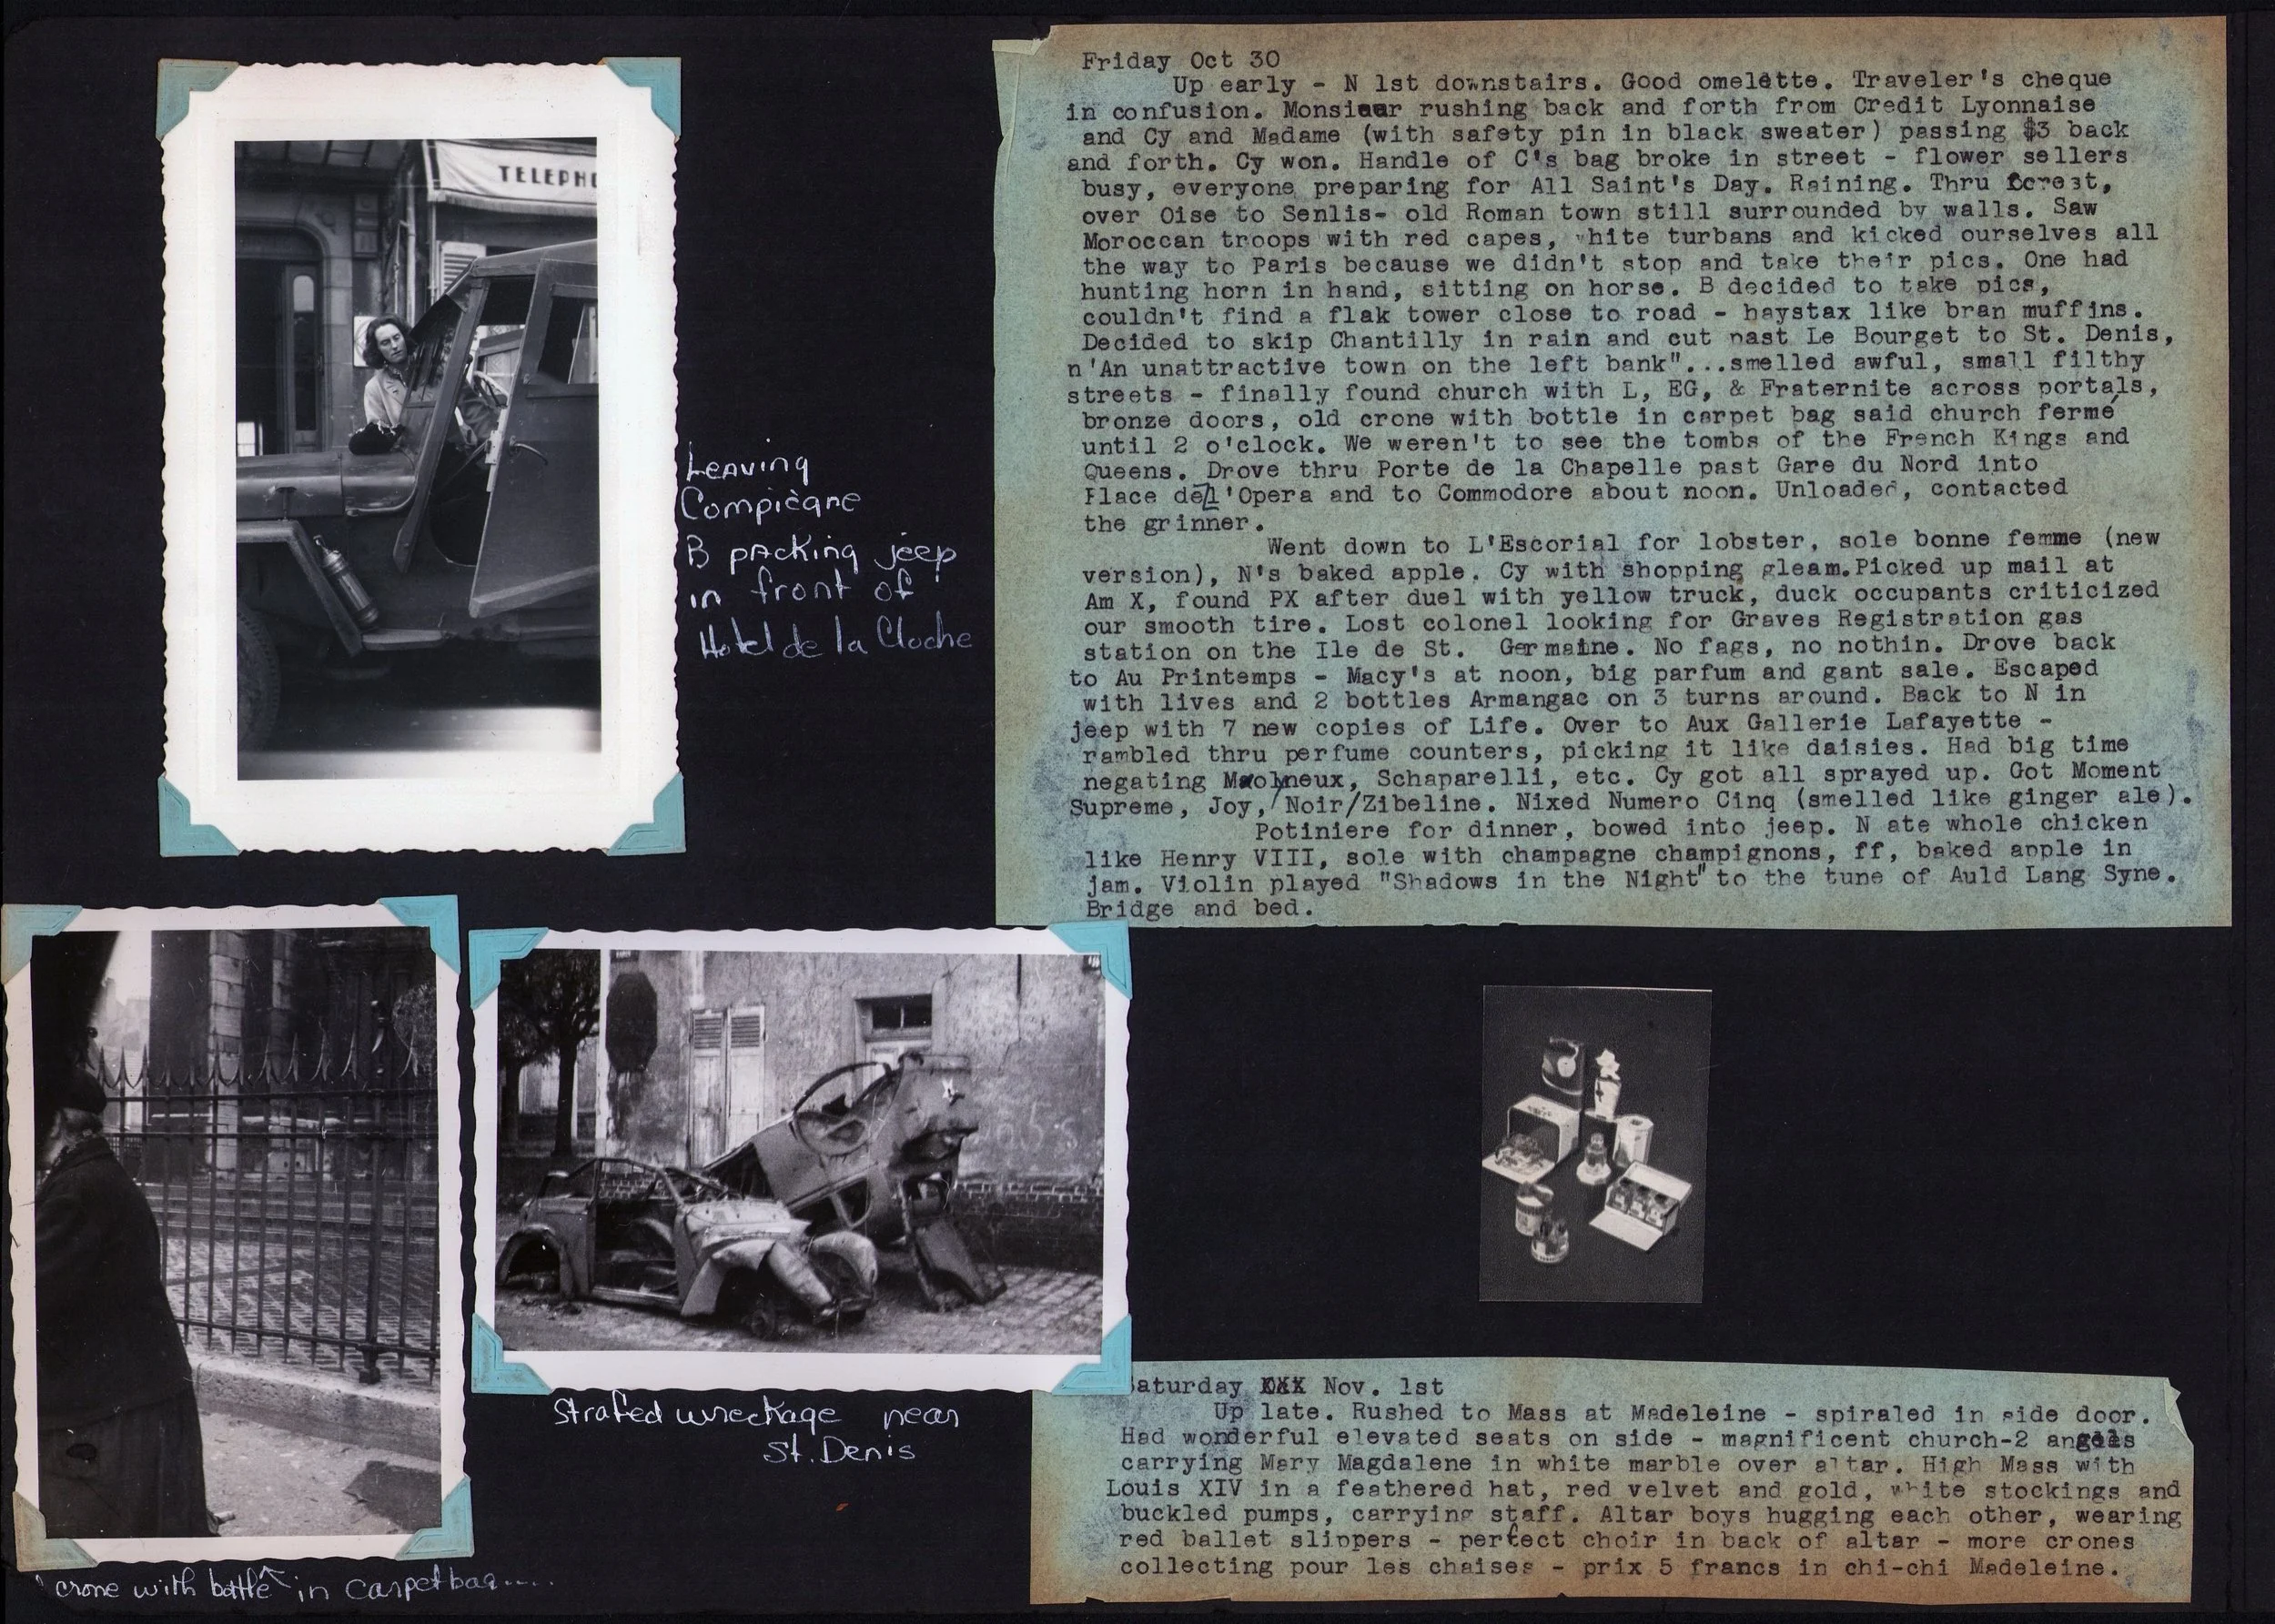 TELEPHO
Leaving
Compiègne
B packing jeep
in front of
Hotel de la Cloche
Friday Oct 30
Up early - N 1st downstairs. Good omelette. Traveler's cheque
in confusion. Monsieur rushing back and forth from Credit Lyonnaise
and Cy and Madame (with safety pin in black sweater) passing $3 back
and forth. Cy won. Handle of C's bag broke in street - flower sellers
busy, everyone preparing for All Saint's Day. Raining. Thru forest,
over Oise to Senlis- old Roman town still surrounded by walls. Saw
Moroccan troops with red capes, white turbans and kicked ourselves all
the way to Paris because we didn't stop and take their pics. One had
hunting horn in hand, sitting on horse. B decided to take pics,
couldn't find a flak tower close to road - haystax like bran muffins.
Decided to skip Chantilly in rain and cut past Le Bourget to St. Denis,
n'An unattractive town on the left bank"...smelled awful, small filthy
streets - finally found church with L, EG, & Fraternite across portals,
bronze doors, old crone with bottle in carpet bag said church fermé
until 2 o'clock. We weren't to see the tombs of the French Kings and
Queens. Drove thru Porte de la Chapelle past Gare du Nord into
Place de l'Opera and to Commodore about noon. Unloaded, contacted
the grinner.
Went down to L'Escorial for lobster, sole bonne femme (new
version), N's baked apple. Cy with shopping gleam.Picked up mail at
Am X, found PX after duel with yellow truck, duck occupants criticized
our smooth tire. Lost colonel looking for Graves Registration gas
station on the Ile de St. Germaine. No fags, no nothin. Drove back
to Au Printemps - Macy's at noon, big parfum and gant sale. Escaped
with lives and 2 bottles Armangac on 3 turns around. Back to N in
jeep with 7 new copies of Life. Over to Aux Gallerie Lafayette -
rambled thru perfume counters, picking it like daisies. Had big time
negating Molyneux, Schaparelli, etc. Cy got all sprayed up. Got Moment
Supreme, Joy,/Noir/Zibeline. Nixed Numero Cinq (smelled like ginger ale).
Potiniere for dinner, bowed into jeep. N ate whole chicken
like Henry VIII, sole with champagne champignons, ff, baked apple in
jam. Violin played "Shadows in the Night" to the tune of Auld Lang Syne.
Bridge and bed.
Strafed wreckage near
St. Denis
crone with bottle ^ in carpetbag....
Saturday XXX Nov. 1st
Up late. Rushed to Mass at Madeleine - spiraled in side door.
Had wonderful elevated seats on side - magnificent church-2 angels
carrying Mary Magdalene in white marble over altar. High Mass with
Louis XIV in a feathered hat, red velvet and gold, white stockings and
buckled pumps, carrying staff. Altar boys hugging each other, wearing
red ballet slippers - perfect choir in back of altar - more crones
collecting pour les chaises - prix 5 francs in chi-chi Madeleine.